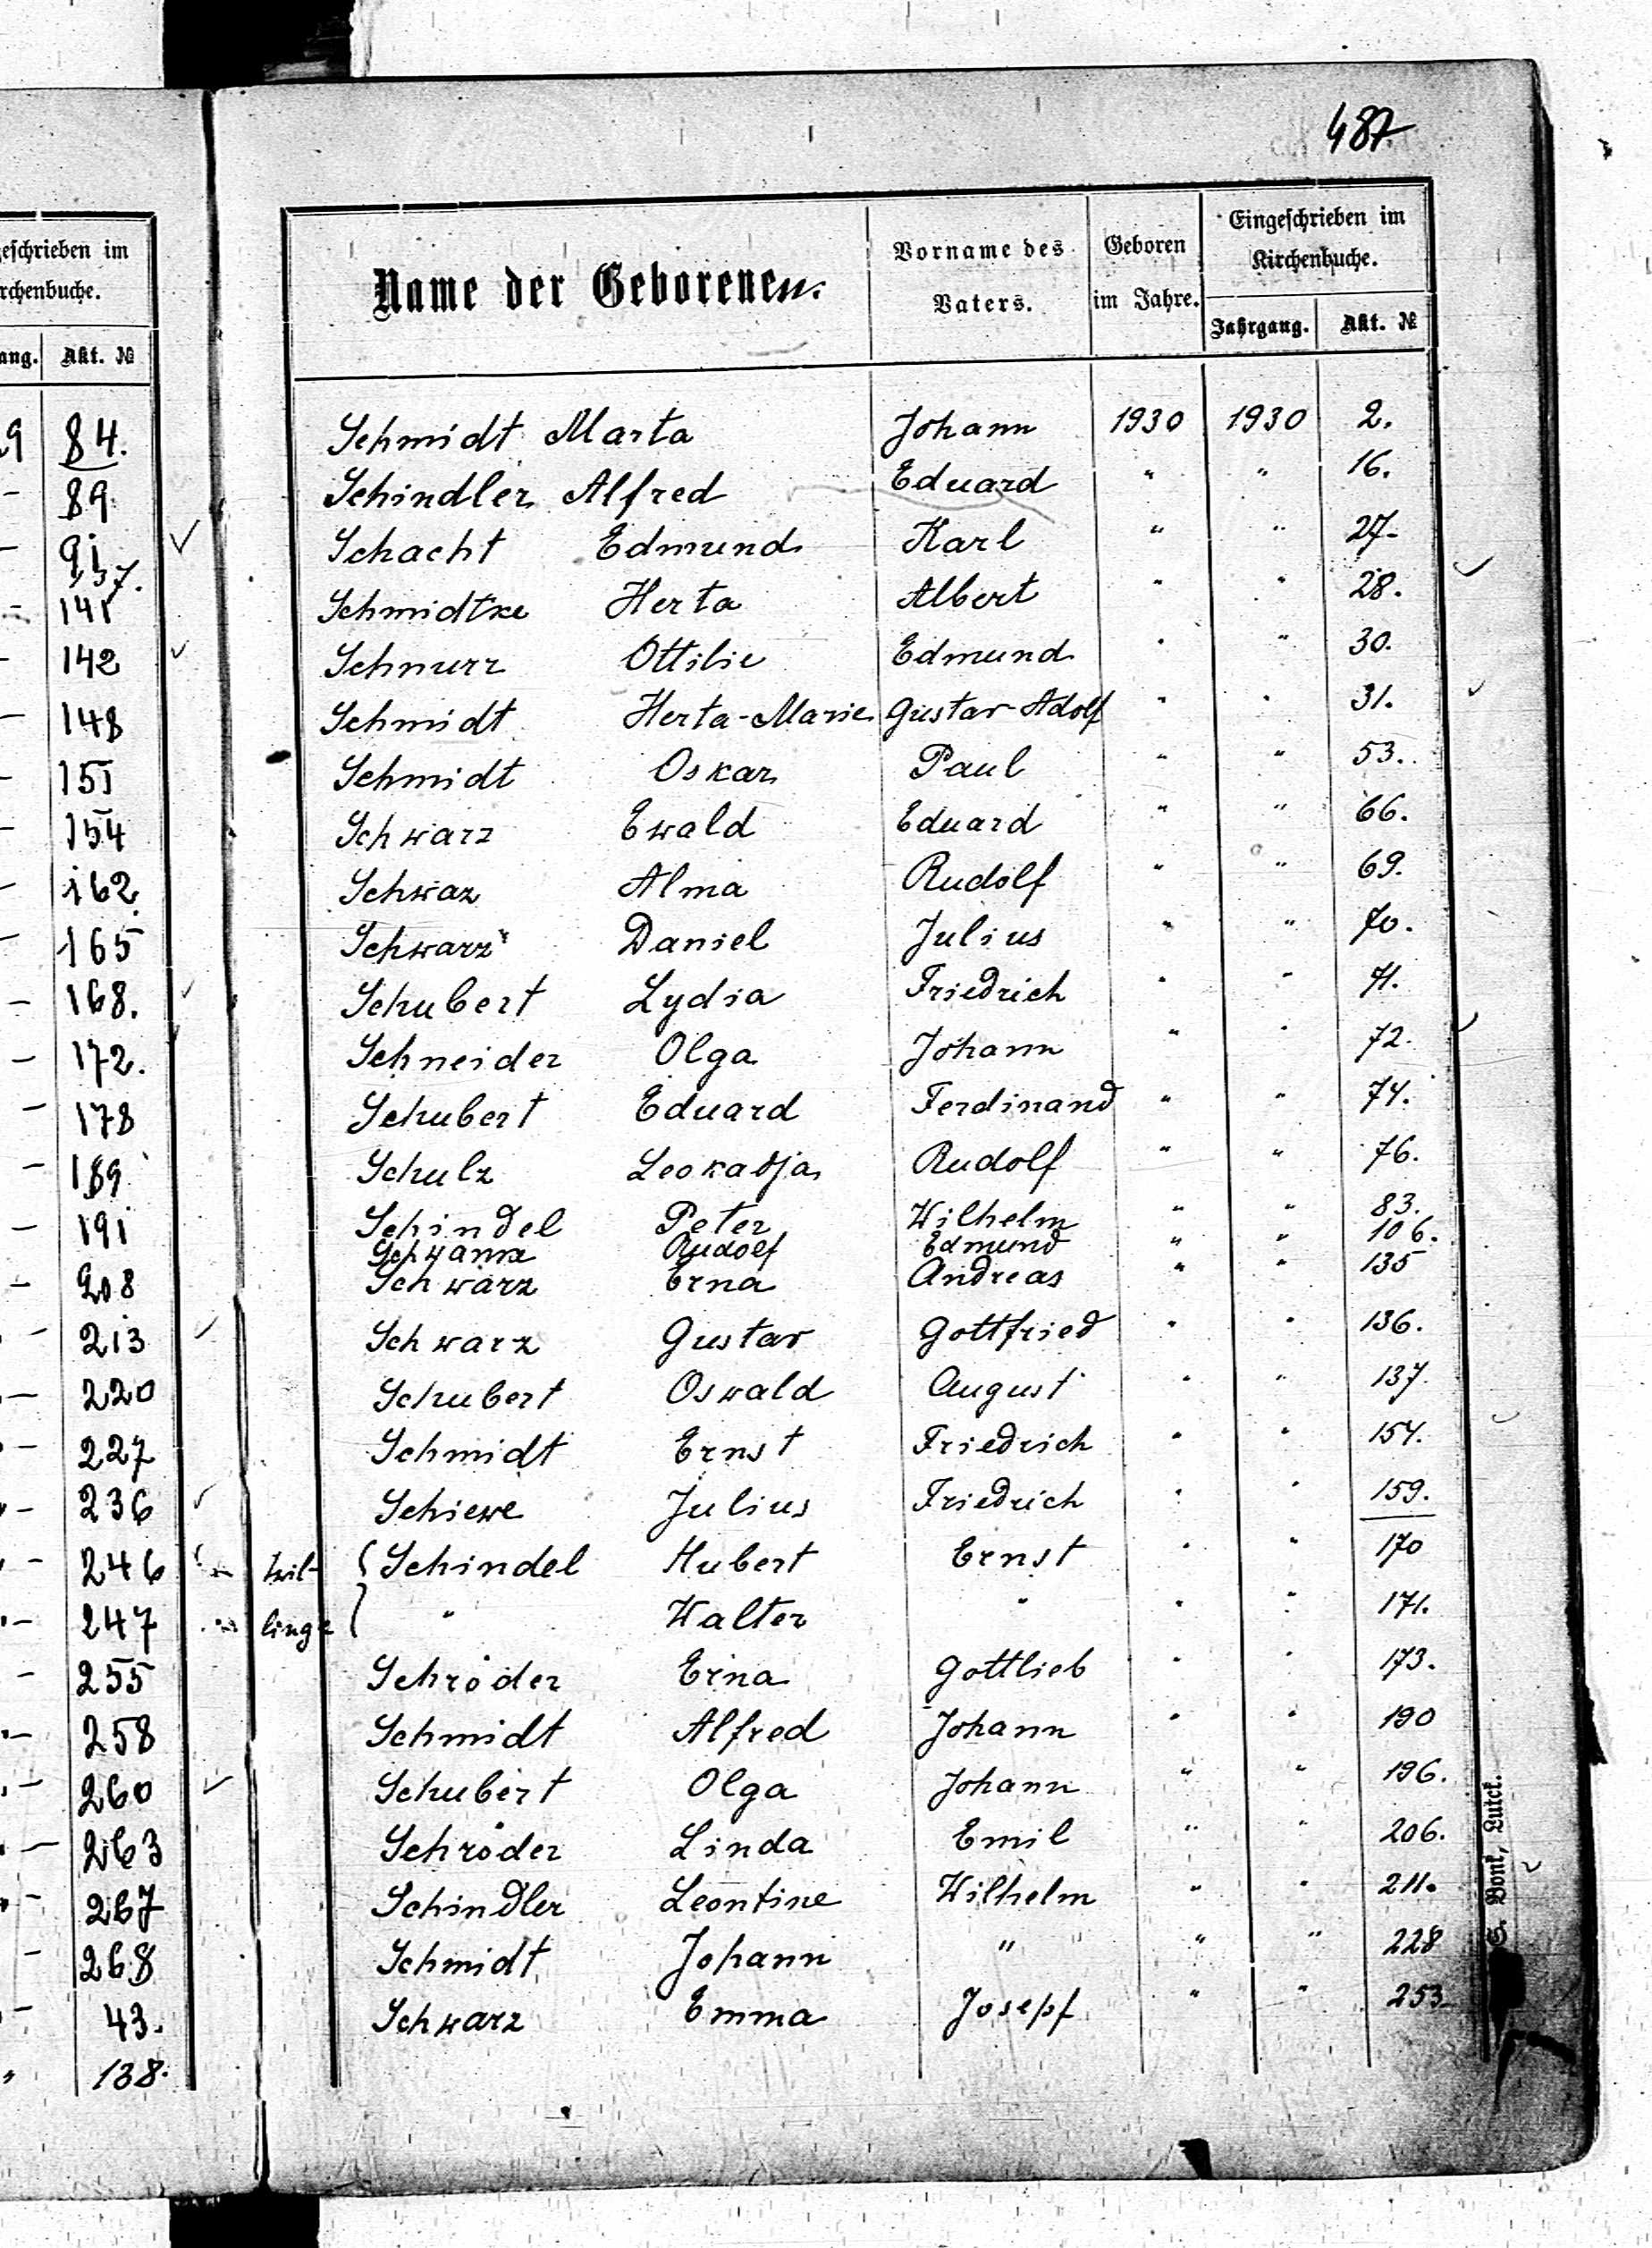 geschrieben im
rchenbuche.
ang. Akt. №
9 84.
– 89
– 91
137.
– 141
– 142
– 148
– 151
– 154
– 162
– 165
– 168.
– 172.
– 178
– 189
– 191
– 208
– 213
– 220
– 227
" – 236
– 246
– 247
– 255
– 258
– 260
– 263
" – 267
– 268
– 43.
" 138.
487
Name der Geborenen.
Vorname des Vaters.
Geboren im Jahre.
Eingeschrieben im Kirchenbuche.
Jahrgang. Akt. №
Schmidt Marta Johann 1930 1930 2.
Schindler Alfred Eduard " " 16.
Schacht Edmund Karl " " 27.
Schmidtke Herta Albert " " 28.
Schnurr Ottilie Edmund " " 30.
Schmidt Herta-Marie Gustav-Adolf " " 31.
Schmidt Oskar Paul " " 53.
Schwarz Ewald Eduard " " 66.
Schwaz Alma Rudolf " " 69.
Schwarz Daniel Julius " " 70.
Schubert Lydia Friedrich " " 71.
Schneider Olga Johann " " 72.
Schubert Eduard Ferdinand " " 74.
Schulz Leokadja Rudolf " " 76.
Schindel Peter Wilhelm " " 83.
Rudolf Edmund " " 106.
Schwarz Erna Andreas " " 135
Schwarz Gustav Gottfried " " 136.
Schubert Oswald August " " 137.
Schmidt Ernst Friedrich " " 154.
Schiewe Julius Friedrich " " 159.
Zwil- { Schindel Hubert Ernst " " 170
linge } " Walter " " " 171.
Schröder Erna Gottlieb " " 173.
Schmidt Alfred Johann " " 190
Schubert Olga Johann " " 196.
Schröder Linda Emil " " 206.
Schindler Leontine Wilhelm " " 211.
Schmidt Johann " " " 228
Schwarz Emma Josepf " " 253
Bont, Luck.